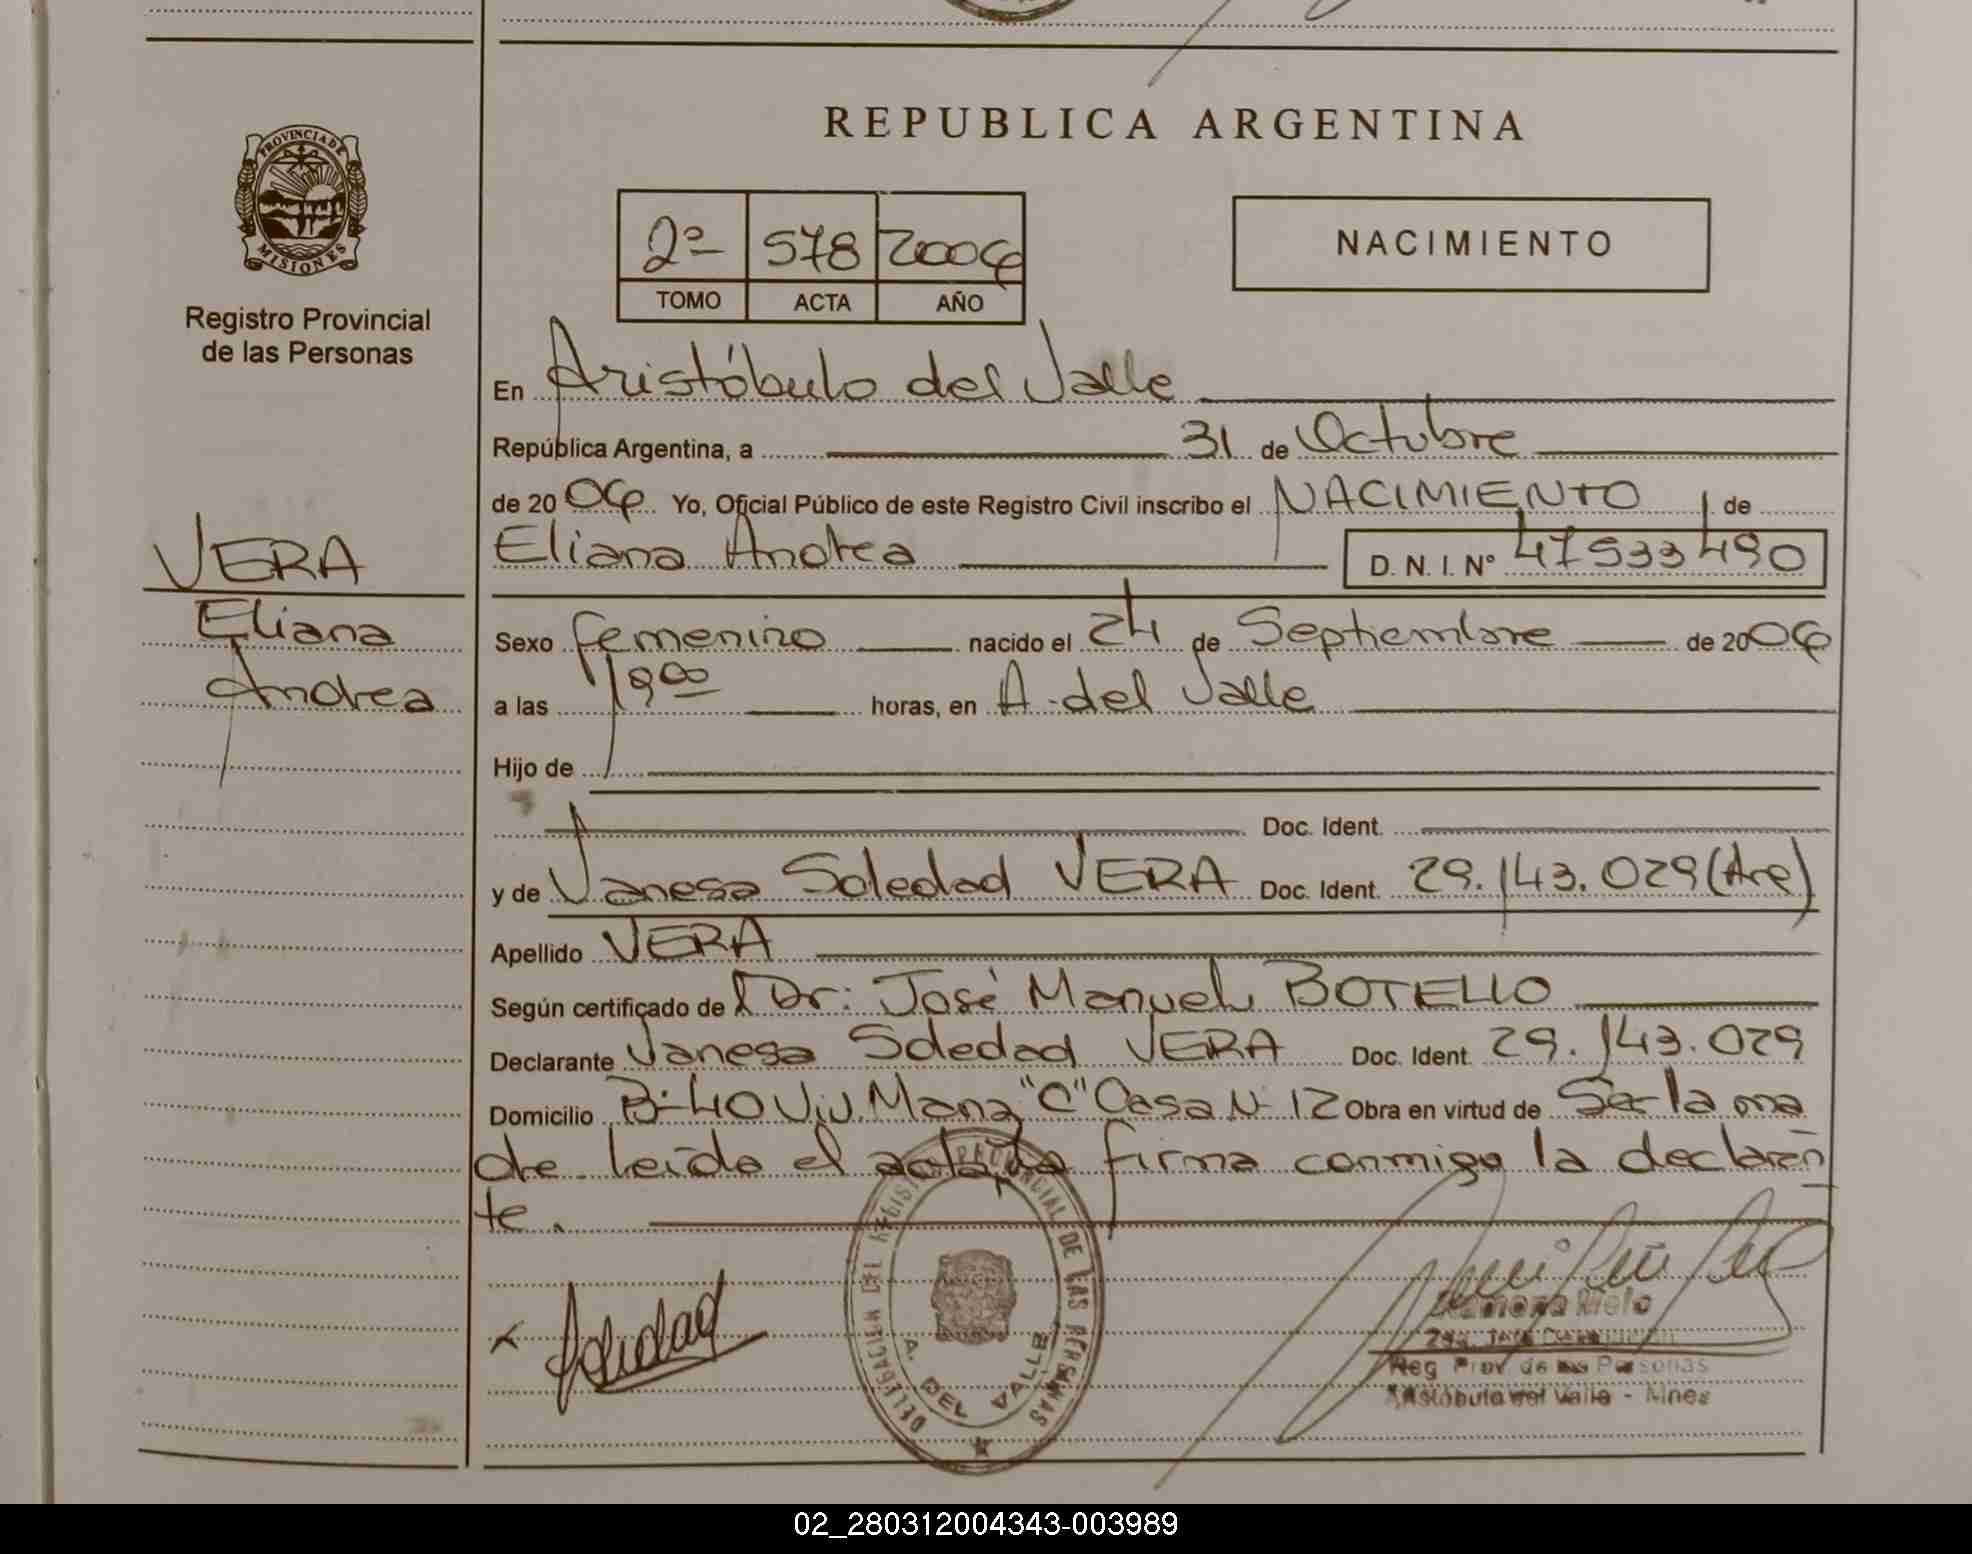 REPUBLICA ARGENTINA
PROVINCIA DE
MISIONES
Registro Provincial
de las Personas
2º 578 2006
TOMO ACTA AÑO
NACIMIENTO
En Aristóbulo del Valle
República Argentina, a 31 de Octubre
de 20 06 Yo, Oficial Público de este Registro Civil inscribo el NACIMIENTO de
Eliana Andrea D. N. I. Nº 47533490
VERA
Eliana
Andrea
Sexo femenino nacido el 24 de Septiembre de 20 06
a las 19 00 horas, en A. del Valle
Hijo de
Doc. Ident.
y de Vanesa Soledad VERA Doc. Ident. 29.143.029 (Arg)
Apellido VERA
Según certificado de Dr: José Manuel BOTELLO
Declarante Vanesa Soledad VERA Doc. Ident. 29.143.029
Domicilio B: 40 Viv. Manz "C" Casa Nº 12 Obra en virtud de Ser la ma
dre. leída el acta, la firma conmigo la declaran
te.
Soledad
DELEGACION DEL REGISTRO PROVINCIAL DE LAS PERSONAS
A. DEL VALLE
Ramona Melo
Reg Prov de las Personas
Aristóbulo del Valle - Mnes
02_280312004343-003989